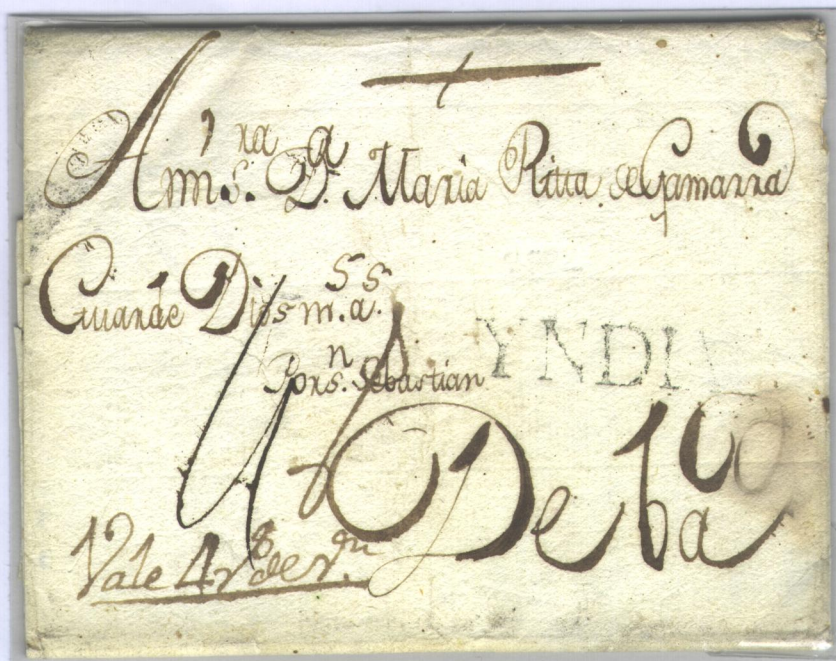 A mi S.ra D.a Maria Ritta de Gamarra
Guarde Dios m.s a.s
YNDIA
Por S.n Sebastian
Deba
Vale 4 r.s de v.n